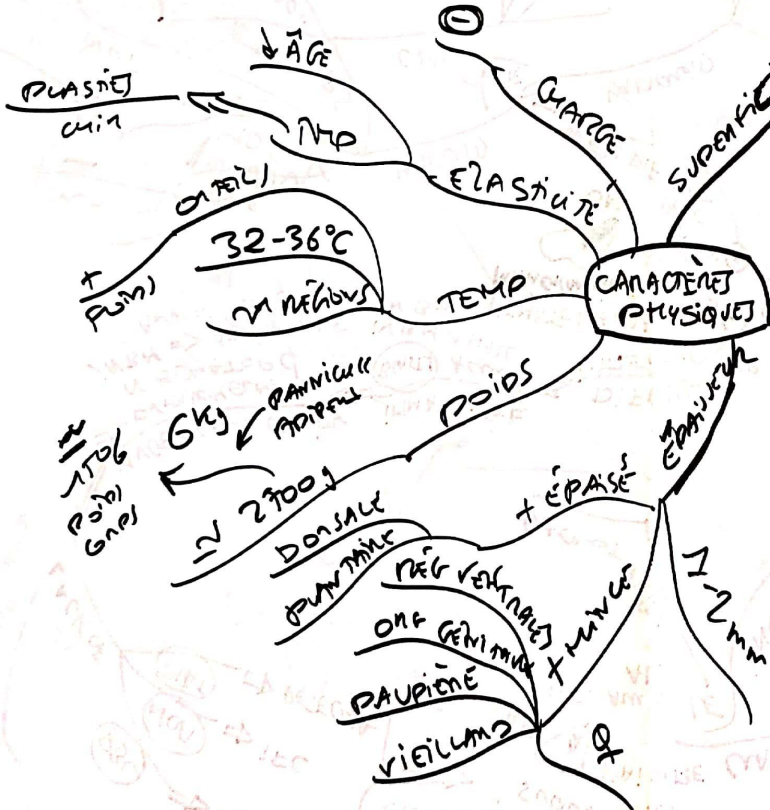 CARACTÈRES
PHYSIQUES
CHARGE
⊖
ELASTICITÉ
↓ ÂGE
IMP
PLASTIES
CHIR
TEMP
ORTEILS
+
32-36°C
≠ RÉGIONS
POIDS
≃ 2700g
6Kg
PANNICULE
ADIPEUX
POIDS
CORPS
ÉPAISSEUR
1-2mm
+ ÉPAISSE
DORSALE
PLANTAIRE
+ MINCE
RÉG VENTRALES
ORG GÉNITAUX
PAUPIÈRE
VIEILLARD
♀